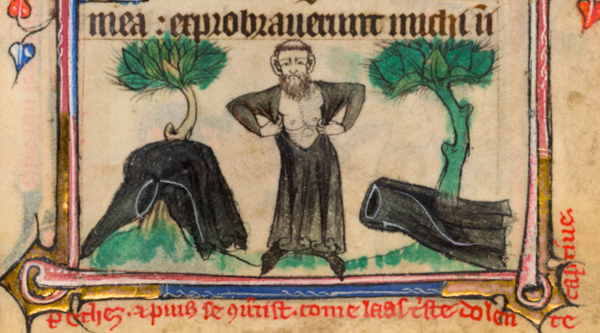 mea : exprobrauerunt michi in
pechez. ⁊ puis se 9u'tist. come la as c'ste dolen te
captiue.